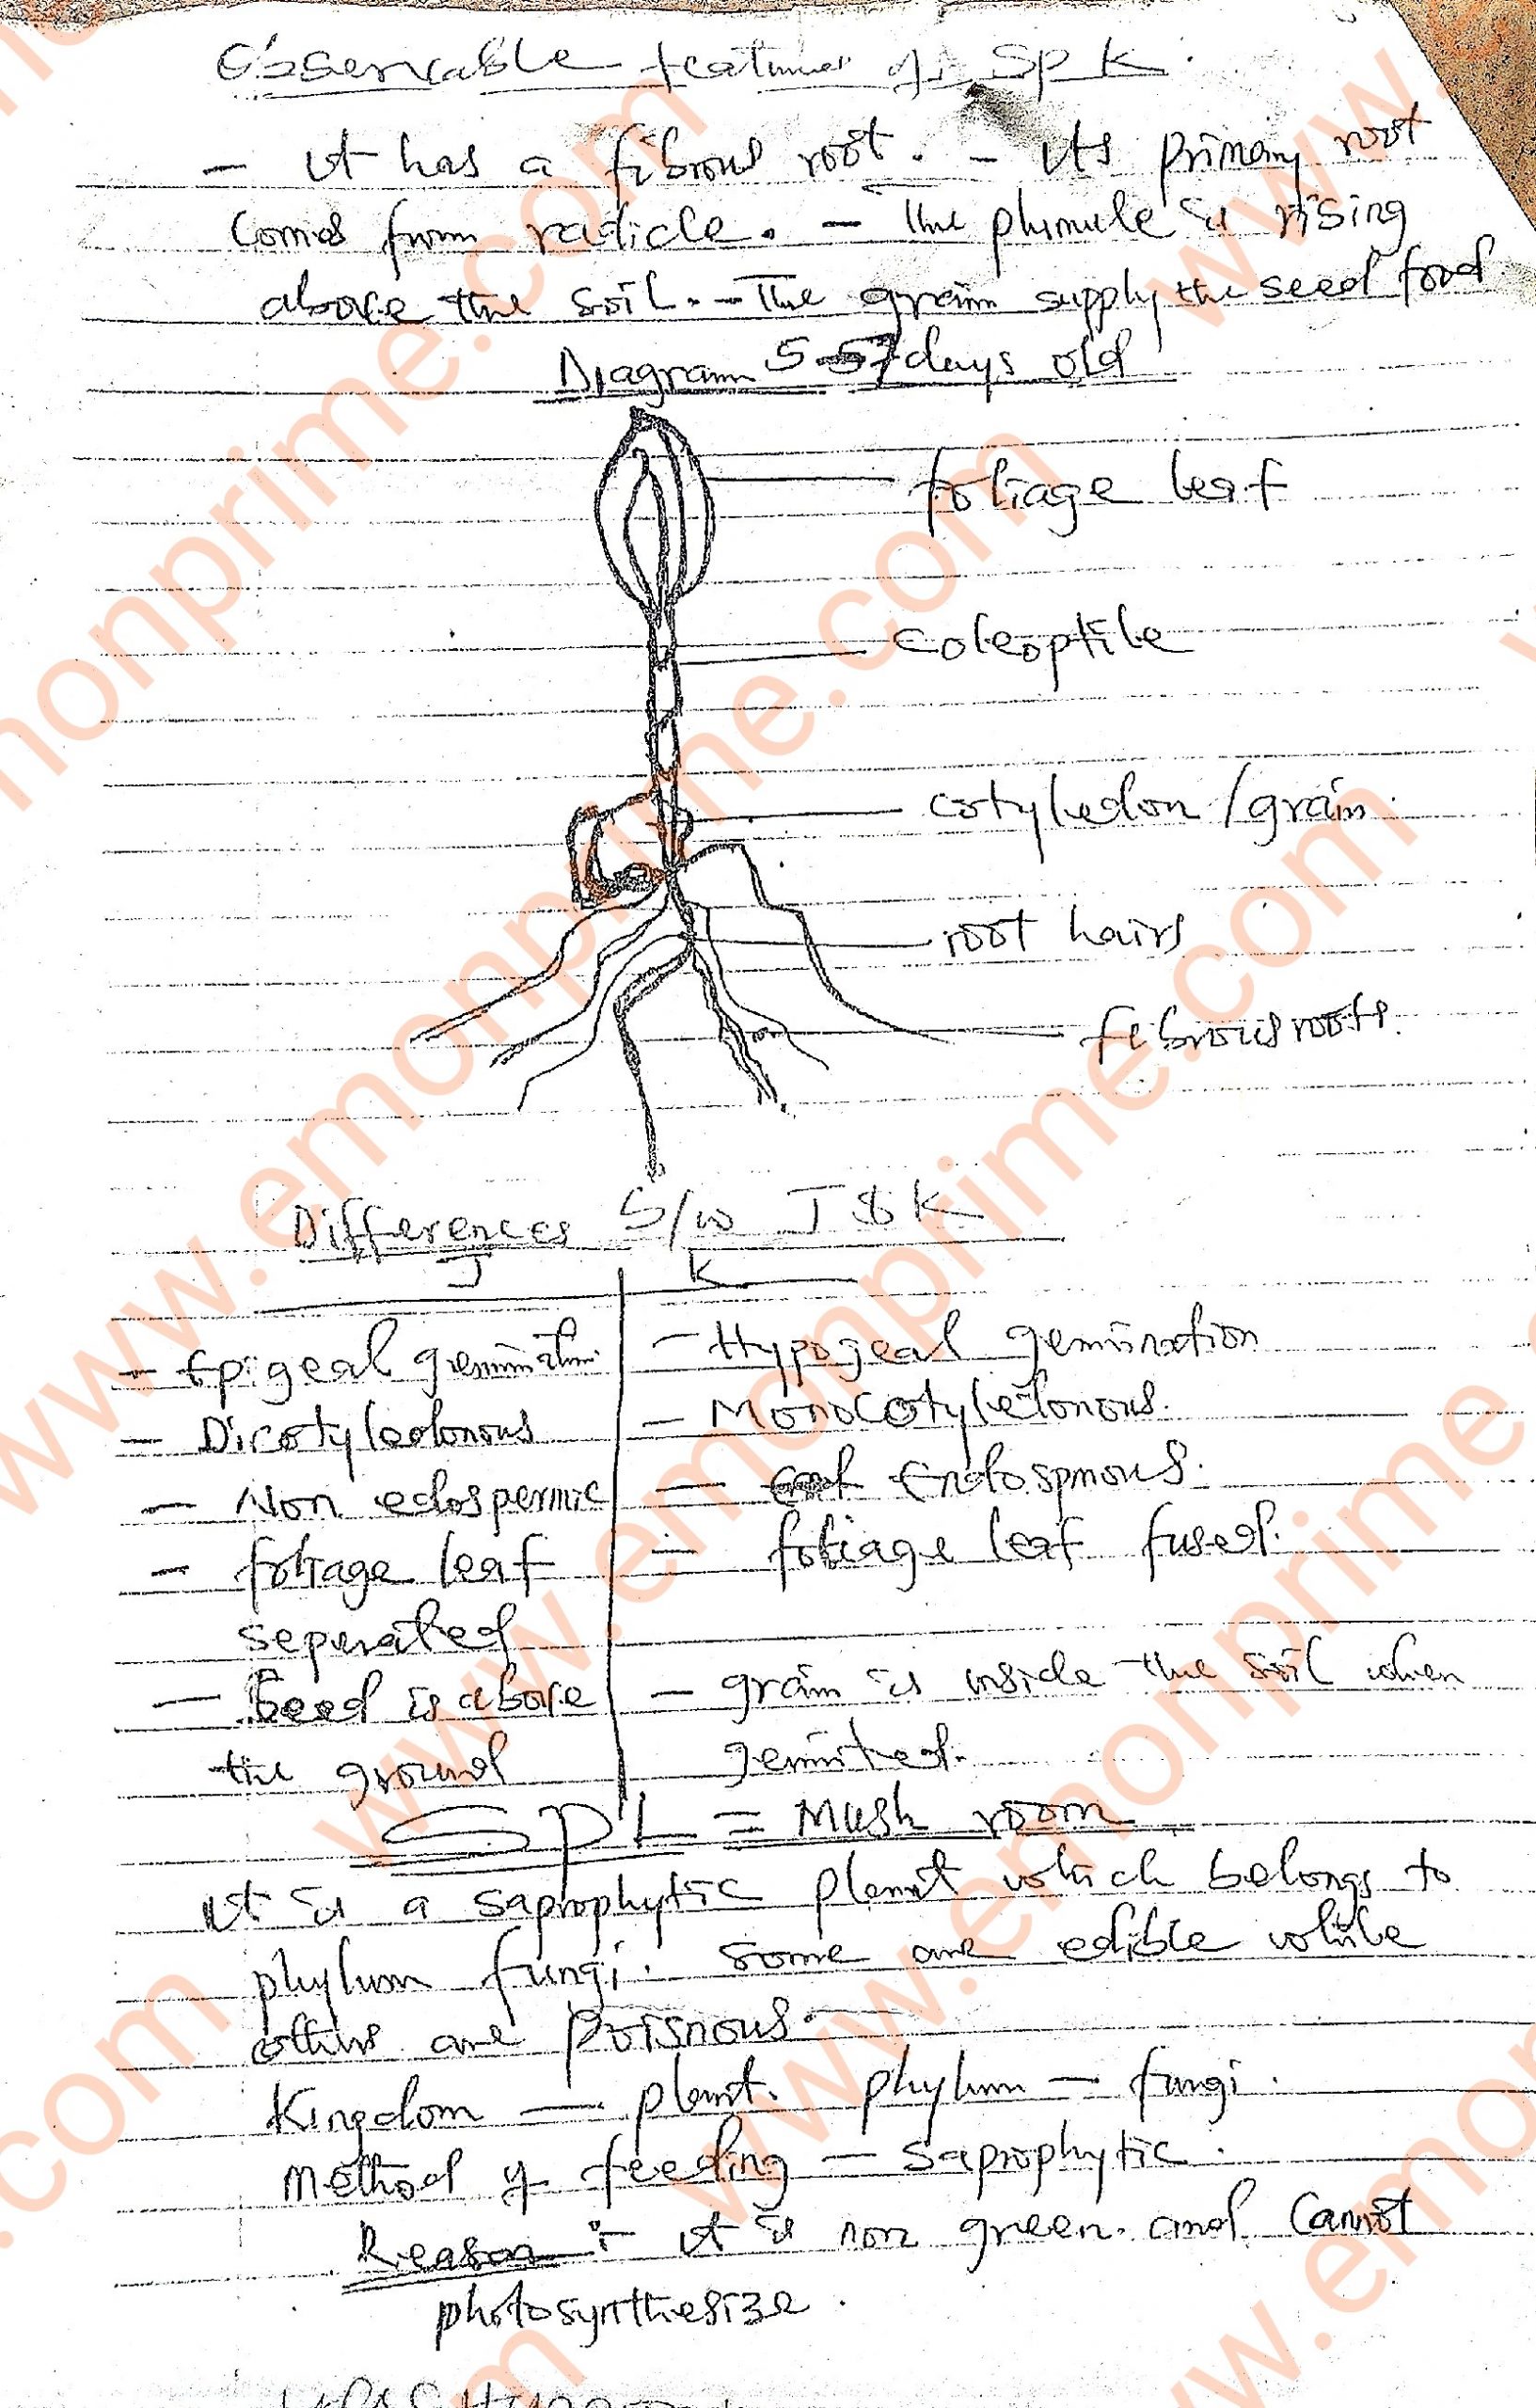 Observable features of SP K.
- It has a fibrous root. - Its primary root
comes from radicle. - The plumule is rising
above the soil. - The grain supply the seed food
Diagram 5-7 days old
foliage leaf
coleoptile
cotyledon / grain.
root hairs
fibrous roots.
Differences b/w J & K
J K
- Epigeal germination. - Hypogeal germination
- Dicotyledonous - Monocotyledonous.
- Non edospermic - Endospmous.
- foliage leaf - foliage leaf fused.
seperated
- Seed is above - grain is inside the soil when
the ground gemited.
SPL = Mush room
It is a saprophytic plant which belongs to
phylum fungi. Some are edible while
others are poisnous.
Kingdom — plant. phylum — fungi.
Method of feeding — saprophytic.
Reason :- It is non green and cannot
photosynthesize.
www.emonprime.com